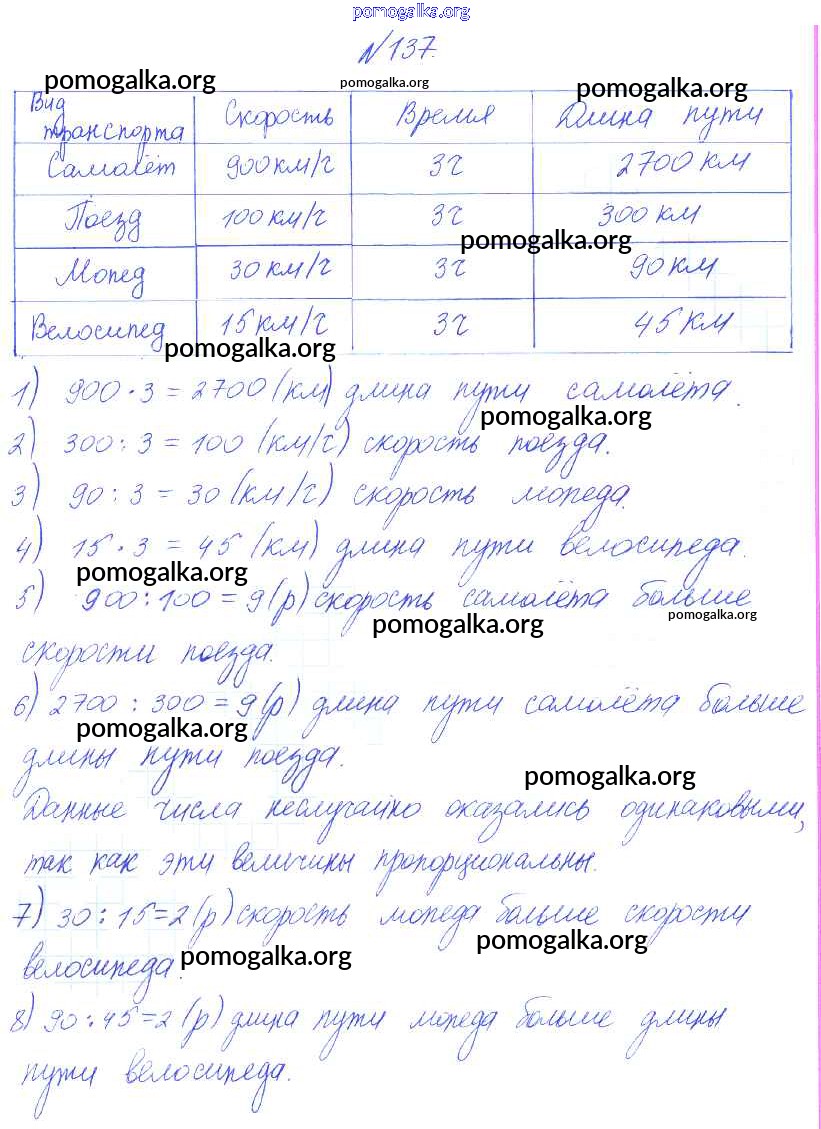 pomogalka.org
N 137.
pomogalka.org pomogalka.org pomogalka.org
Вид транспорта Скорость Время Длина пути
Самолёт 900 км/ч 3 ч 2700 км
Поезд 100 км/ч 3 ч 300 км
pomogalka.org
Мопед 30 км/ч 3 ч 90 км
Велосипед 15 км/ч 3 ч 45 км
pomogalka.org
1) 900 · 3 = 2700 (км) длина пути самолёта.
pomogalka.org
2) 300 : 3 = 100 (км/ч) скорость поезда.
3) 90 : 3 = 30 (км/ч) скорость мопеда.
4) 15 · 3 = 45 (км) длина пути велосипеда.
pomogalka.org
5) 900 : 100 = 9 (р) скорость самолёта больше
pomogalka.org pomogalka.org
скорости поезда.
6) 2700 : 300 = 9 (р) длина пути самолёта больше
pomogalka.org
длины пути поезда.
pomogalka.org
Данные числа неслучайно оказались одинаковыми,
так как эти величины пропорциональны.
7) 30 : 15 = 2 (р) скорость мопеда больше скорости
pomogalka.org
велосипеда.
pomogalka.org
8) 90 : 45 = 2 (р) длина пути мопеда больше длины
пути велосипеда.